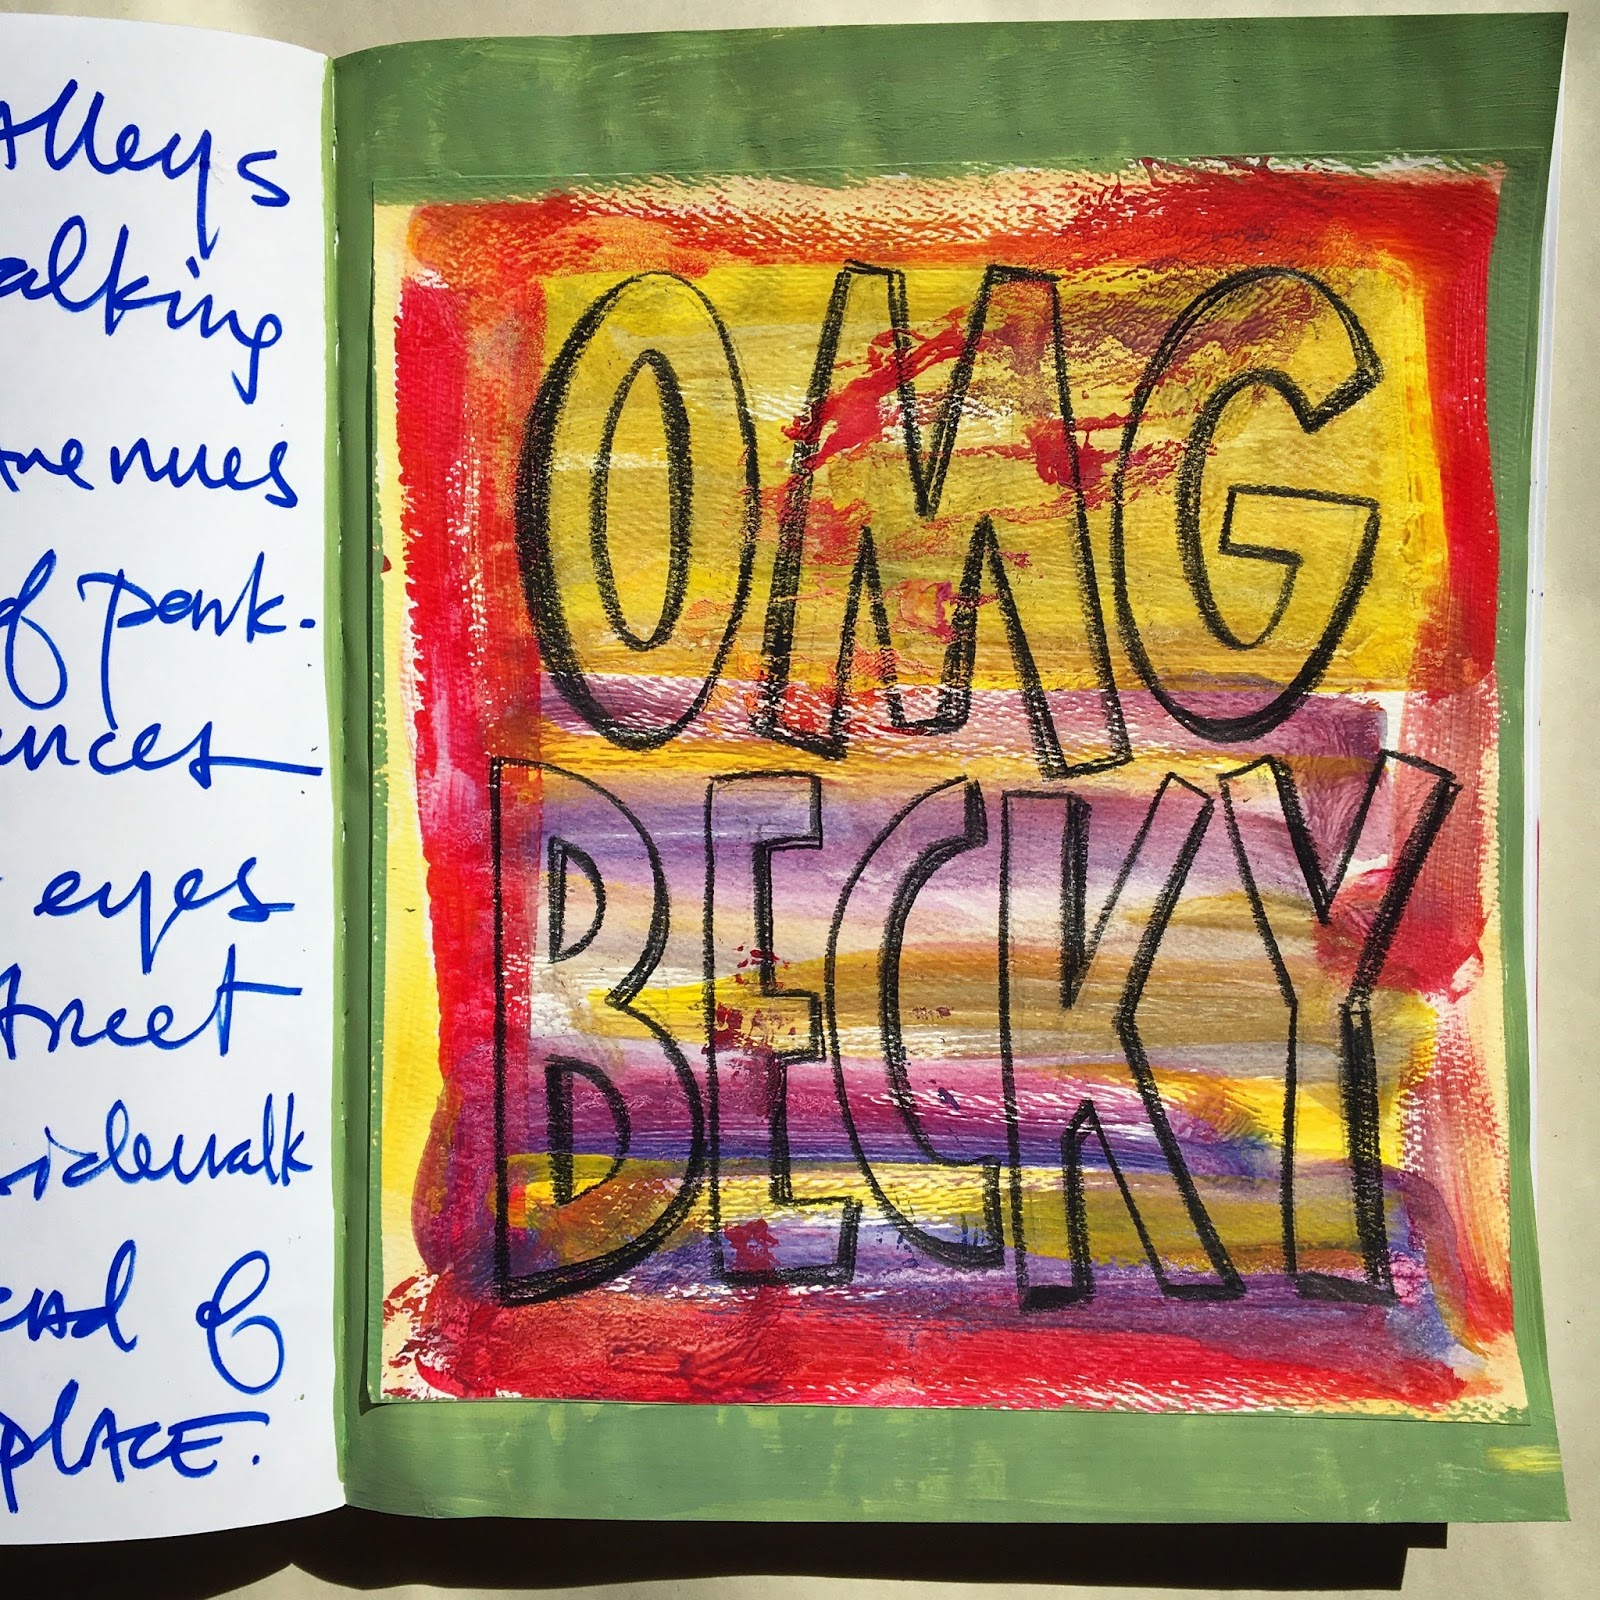 Alleys
alking
Avenues
of
ances
eyes
treet
idewalk
of
PLACE.
OMG
BECKY